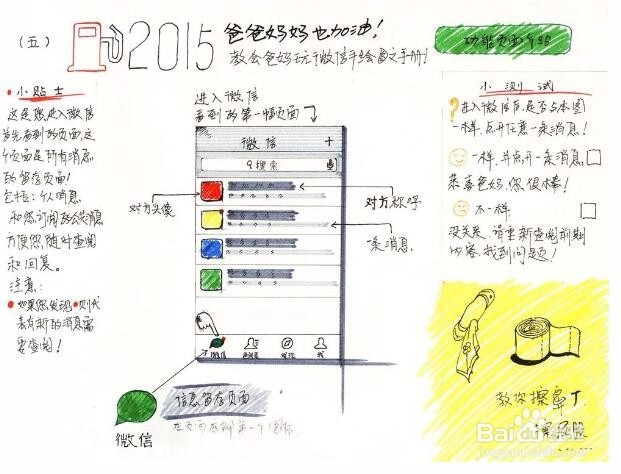 (五)
2015
爸爸妈妈也加油!
教会爸妈玩转微信手绘图文手册!
功能页面介绍
小贴士
这是您进入微信
首先看到的页面,这
个页面是所有消息
的留存页面!
包括:个人消息
和您订阅的公共消息
方便您随时查阅
和回复。
注意:
如果您发现●则代
表有新的消息需
要查阅!
进入微信
看到的第一幅页面
微信 +
搜索
对方头像
对方称呼
一条消息
微信
通讯录
发现
我
信息留存页面
在页面左部第一个图标
微信
小测试
进入微信后,是否与本图
一样,点开任意一条消息!
一样,并点开一条消息
恭喜爸妈,您很棒!
不一样
没关系,请重新查阅前期
内容,找到问题!
教你擦卓丁
Baidu经验